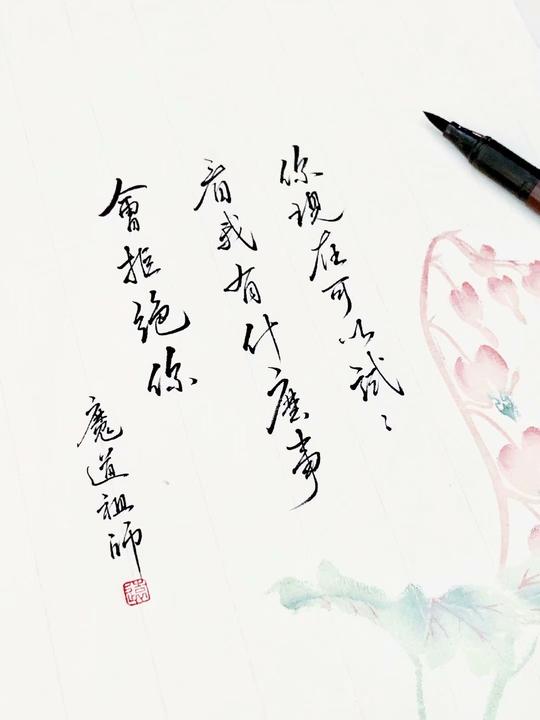 你現在可以試〻
看我有什麽事
會拒絕你
魔道祖師